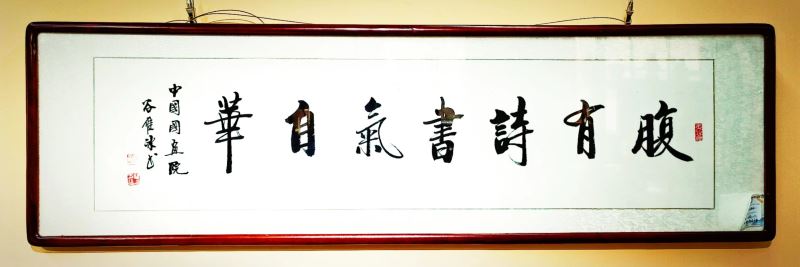 腹有詩書氣自華
中國國畫院